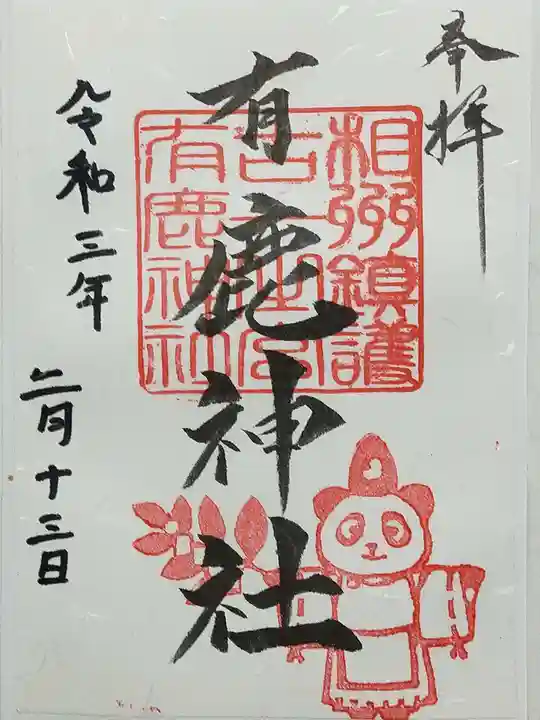 奉拝
有鹿神社
相州鎮護
有鹿神社
令和三年
二月十三日